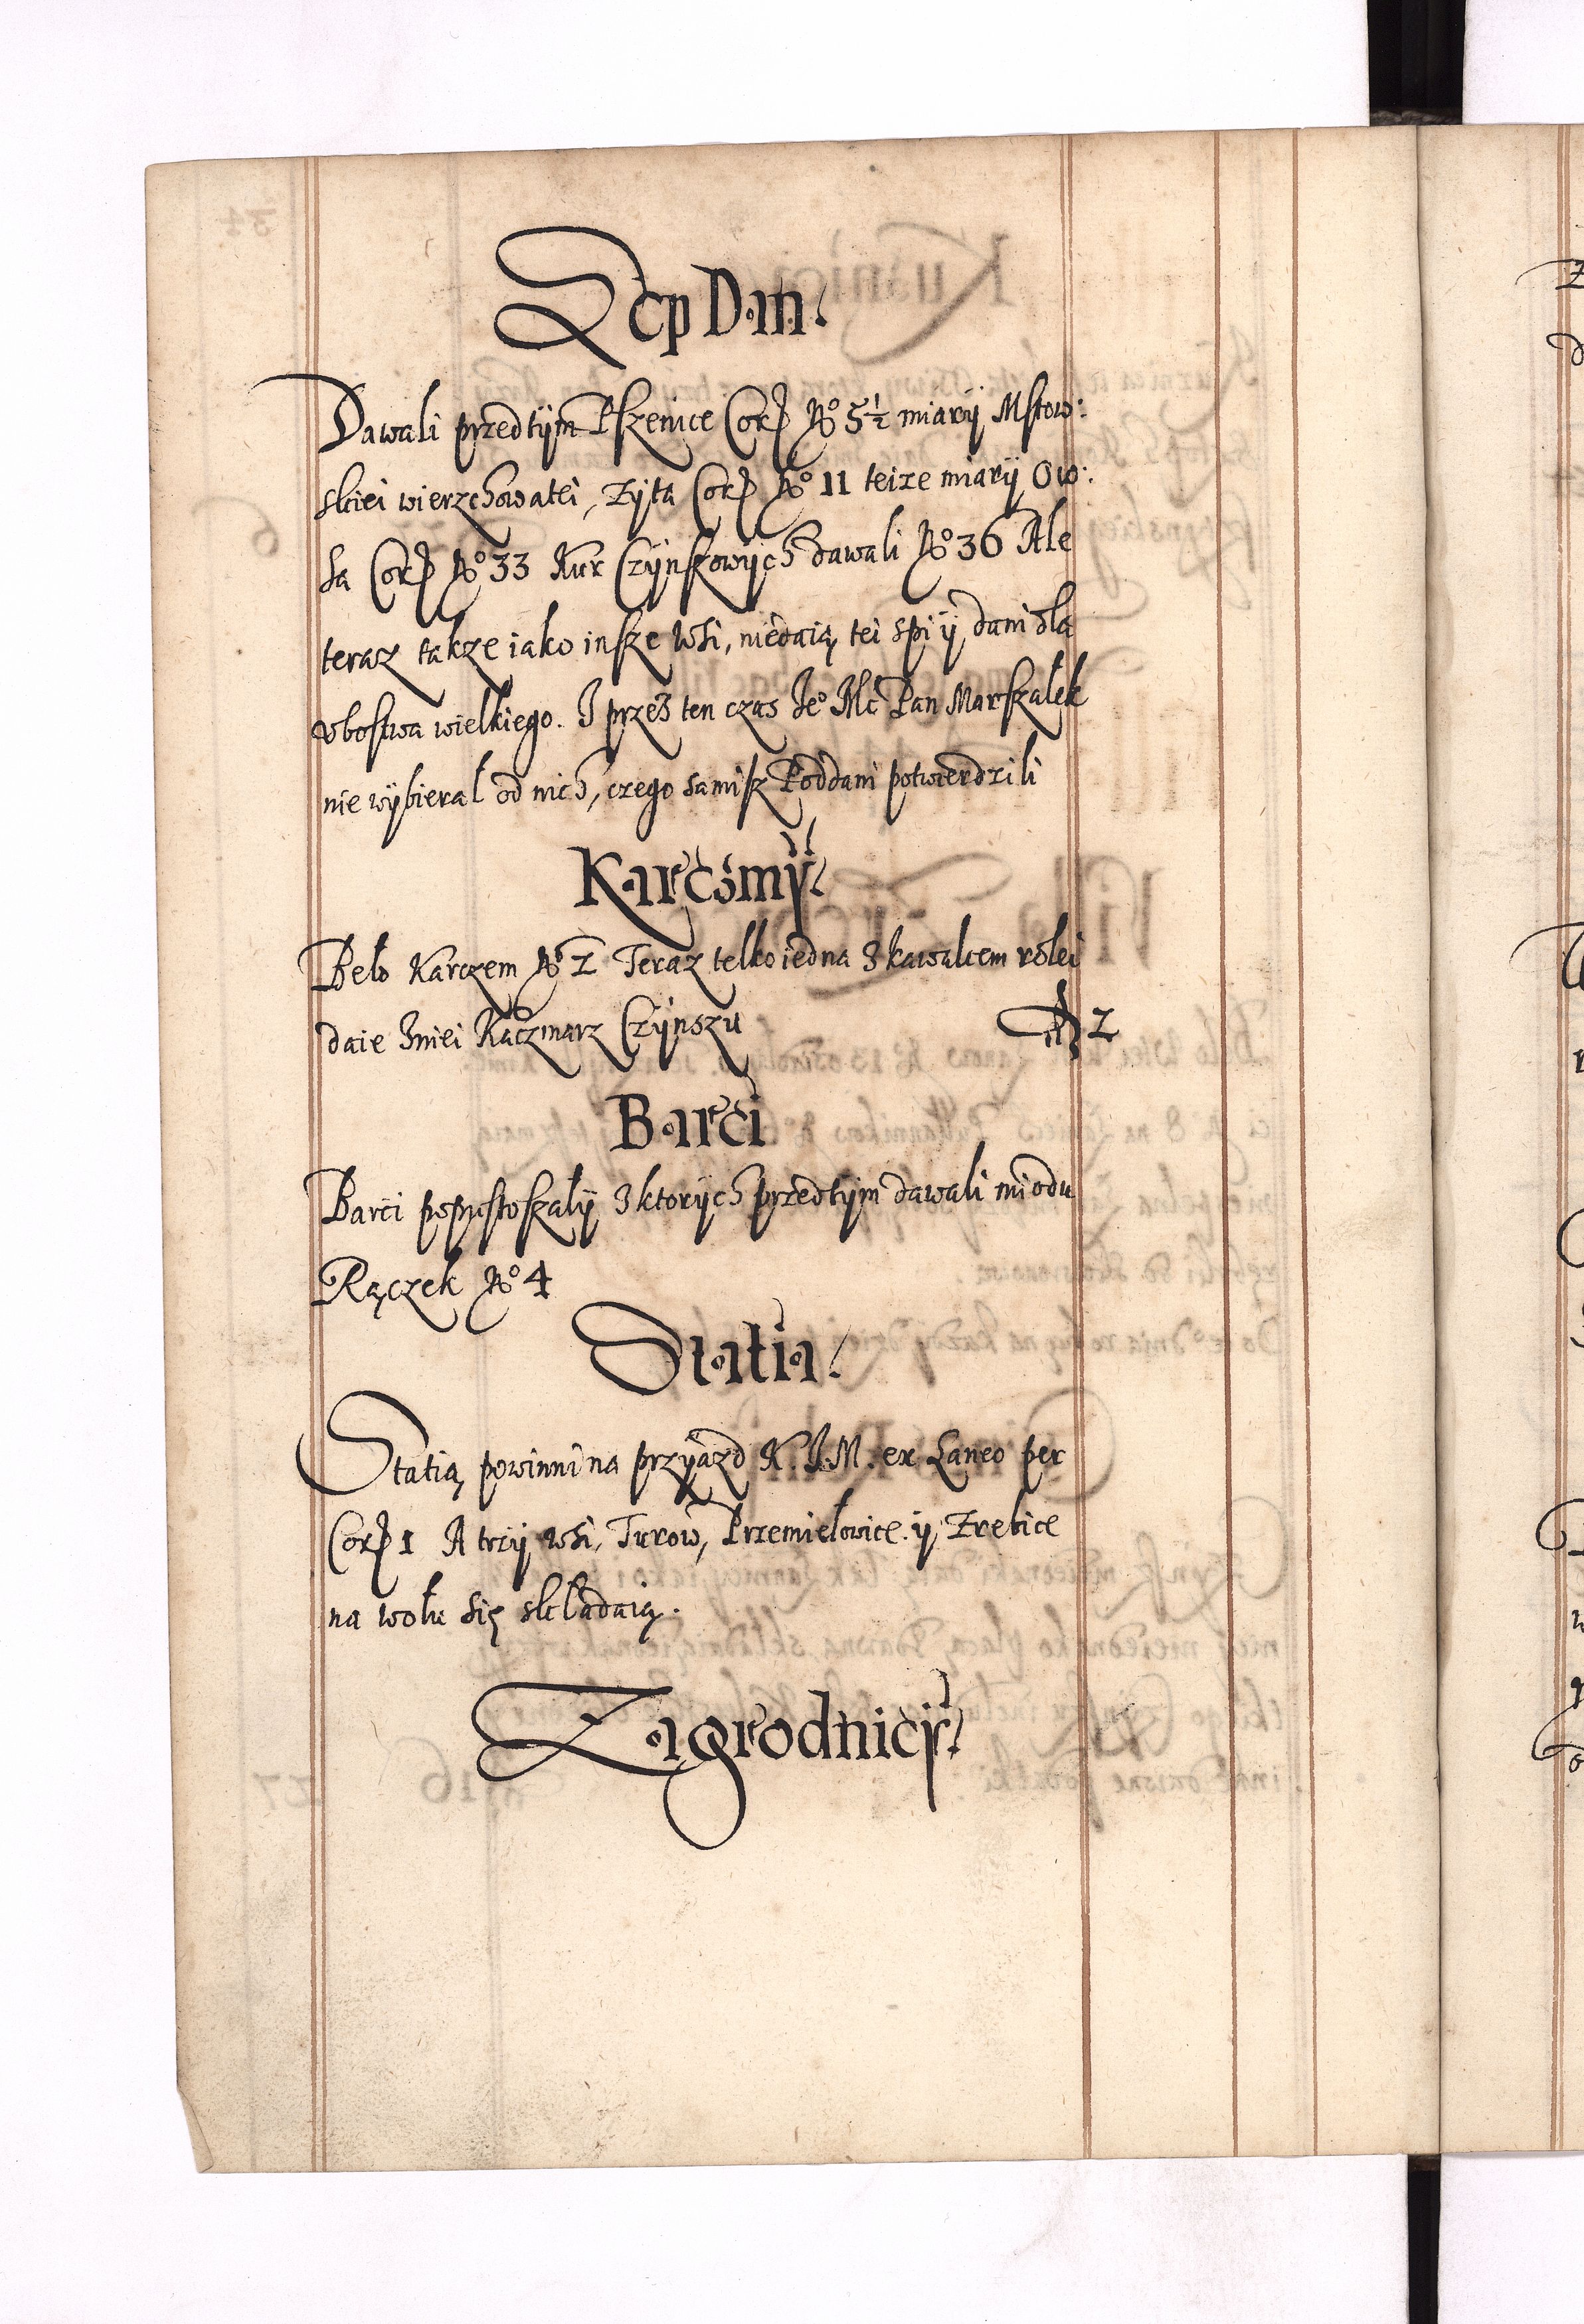 Sep Dan.
Dawali przedtÿm Pszenice Cor. No 5½ miarÿ Mstow:
skiei wierzchowatei, Zÿta Cor. No 11 teize miarÿ Ow:
sa Cor. No 33 Kur Czÿnszowÿch dawali No 36 Ale
teraz takze iako insze Wsi, niedaią tei spi ÿ dani dla
vbostwa wielkiego. I przez ten czas Jeo Mc Pan Marszałek
nie wÿbierał od nich, czego samisz Poddani potwierdzili
Karczmÿ.
Beło Karczem No 2 Teraz telko iedna z kawałcem rolei
daie zniei Kaczmarz Czÿnszu 2
Barci
Barci popustoszalÿ z ktorÿch przedtÿm dawali miodu
Rączek No 4
Statia.
Statią powinni na przÿiazd K. J. M. ex Laneo per
Cor. 1 A trzÿ wsi, Turow, Przemiełowice ÿ Zrebice
na wołu się składaią.
Zagrodnicÿ.